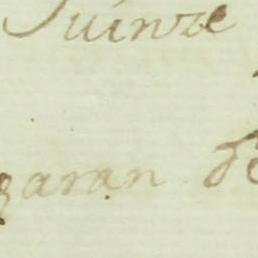 Quinze
garan de